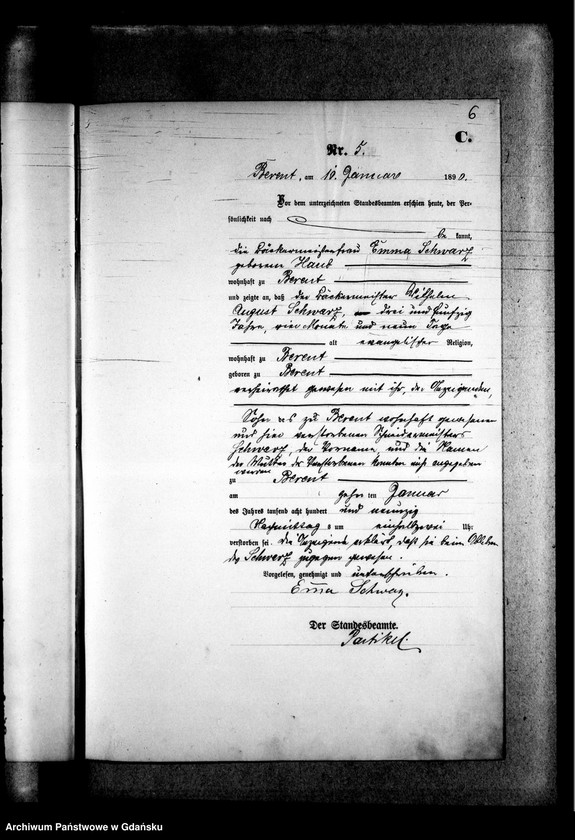 6
C.
Nr. 5.
Berent, am 10. Januar 1890.
Vor dem unterzeichneten Standesbeamten erschien heute, der Per-
sönlichkeit nach
be kannt,
die Bäckermeisterfrau Emma Schwarz
geborene
wohnhaft zu Berent
und zeigte an, daß der Bäckermeister Wilhelm
August Schwarz, drei und fünfzig
Jahre, vier Monate und neun Tage
alt evangelischer Religion,
wohnhaft zu Berent
geboren zu Berent
verheirathet gewesen mit ihr, der Anzeigenden,
Sohn des zu Berent wohnhaft gewesenen
und hier verstorbenen Schneidermeisters
Schwarz, der Vorname, und die Namen
der Mutter des Verstorbenen konnten nicht angegeben
werden
zu Berent
am zehn ten Januar
des Jahres tausend acht hundert und neunzig
Nachmittags um einhalbzwei Uhr
verstorben sei. Die Anzeigende erklärt, daß sie beim Ableben
des Schwarz zugegen gewesen.
Vorgelesen, genehmigt und unterschrieben.
Emma Schwarz.
Der Standesbeamte.
Partikel.
Archiwum Państwowe w Gdańsku